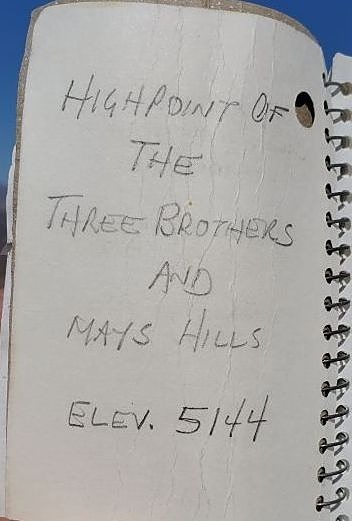 HIGHPOINT OF
THE
THREE BROTHERS
AND
MAYS HILLS
ELEV. 5144